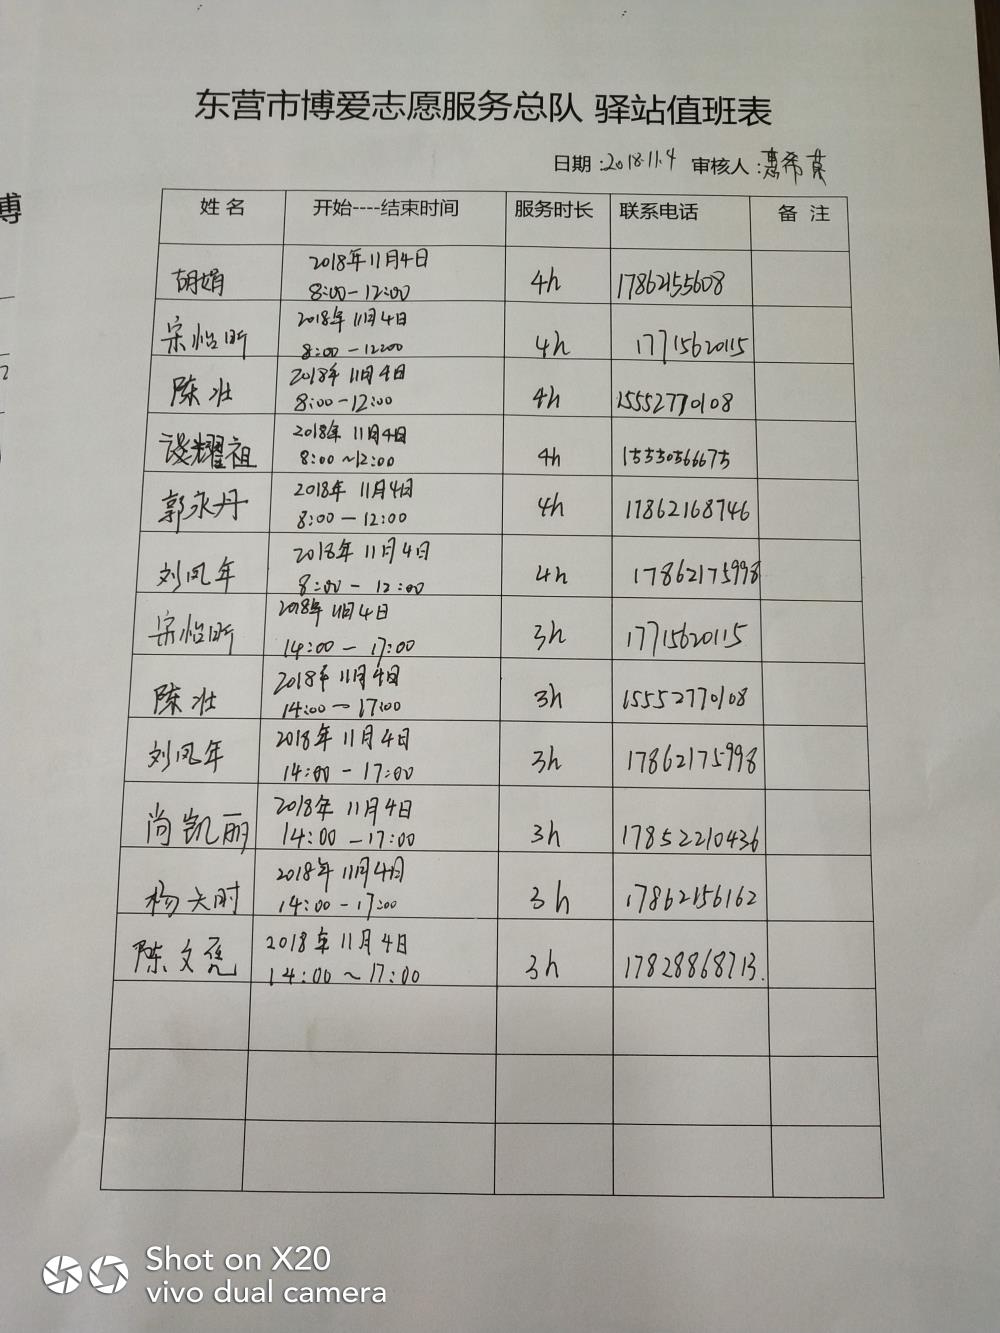 东营市博爱志愿服务总队 驿站值班表
日期:2018.11.4 审核人:惠希英
姓名 开始----结束时间 服务时长 联系电话 备 注
胡娟 2018年11月4日 8:00-12:00 4h 17862155608
宋怡昕 2018年11月4日 8:00-12:00 4h 17715620115
陈壮 2018年11月4日 8:00-12:00 4h 15552770108
谈耀祖 2018年11月4日 8:00~12:00 4h 15550566675
郭永丹 2018年11月4日 8:00-12:00 4h 17862168746
刘凤年 2018年11月4日 8:00-12:00 4h 17862175998
宋怡昕 2018年11月4日 14:00-17:00 3h 17715620115
陈壮 2018年11月4日 14:00-17:00 3h 15552770108
刘凤年 2018年11月4日 14:00-17:00 3h 17862175998
尚凯丽 2018年11月4日 14:00-17:00 3h 17852210436
杨天时 2018年11月4日 14:00-17:00 3h 17862156162
陈文 2018年11月4日 14:00~17:00 3h 17828868713.
博
Shot on X20
vivo dual camera